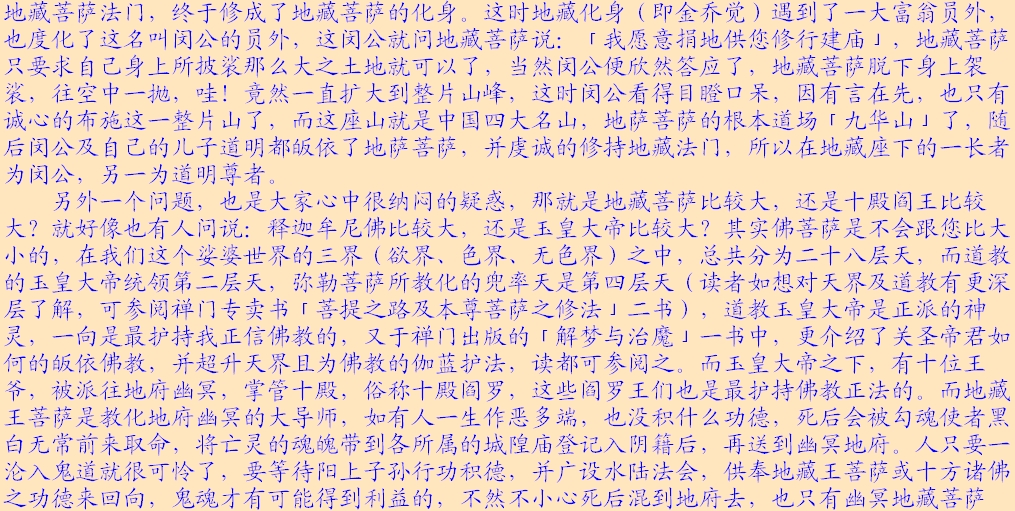 地藏菩萨法门，终于修成了地藏菩萨的化身。这时地藏化身（即金乔觉）遇到了一大富翁员外，
也度化了这名叫闵公的员外，这闵公就问地藏菩萨说：「我愿意捐地供您修行建庙」，地藏菩萨
只要求自己身上所披裟那么大之土地就可以了，当然闵公便欣然答应了，地藏菩萨脱下身上袈
裟，往空中一抛，哇！竟然一直扩大到整片山峰，这时闵公看得目瞪口呆，因有言在先，也只有
诚心的布施这一整片山了，而这座山就是中国四大名山，地萨菩萨的根本道场「九华山」了，随
后闵公及自己的儿子道明都皈依了地萨菩萨，并虔诚的修持地藏法门，所以在地藏座下的一长者
为闵公，另一为道明尊者。
另外一个问题，也是大家心中很纳闷的疑惑，那就是地藏菩萨比较大，还是十殿阎王比较
大？就好像也有人问说：释迦牟尼佛比较大，还是玉皇大帝比较大？其实佛菩萨是不会跟您比大
小的，在我们这个娑婆世界的三界（欲界、色界、无色界）之中，总共分为二十八层天，而道教
的玉皇大帝统领第二层天，弥勒菩萨所教化的兜率天是第四层天（读者如想对天界及道教有更深
层了解，可参阅禅门专卖书「菩提之路及本尊菩萨之修法」二书），道教玉皇大帝是正派的神
灵，一向是最护持我正信佛教的，又于禅门出版的「解梦与治魔」一书中，更介绍了关圣帝君如
何的皈依佛教，并超升天界且为佛教的伽蓝护法，读都可参阅之。而玉皇大帝之下，有十位王
爷，被派往地府幽冥，掌管十殿，俗称十殿阎罗，这些阎罗王们也是最护持佛教正法的。而地藏
王菩萨是教化地府幽冥的大导师，如有人一生作恶多端，也没积什么功德，死后会被勾魂使者黑
白无常前来取命，将亡灵的魂魄带到各所属的城隍庙登记入阴籍后，再送到幽冥地府。人只要一
沦入鬼道就很可怜了，要等待阳上子孙行功积德，并广设水陆法会，供奉地藏王菩萨或十方诸佛
之功德来回向，鬼魂才有可能得到利益的，不然不小心死后混到地府去，也只有幽冥地藏菩萨